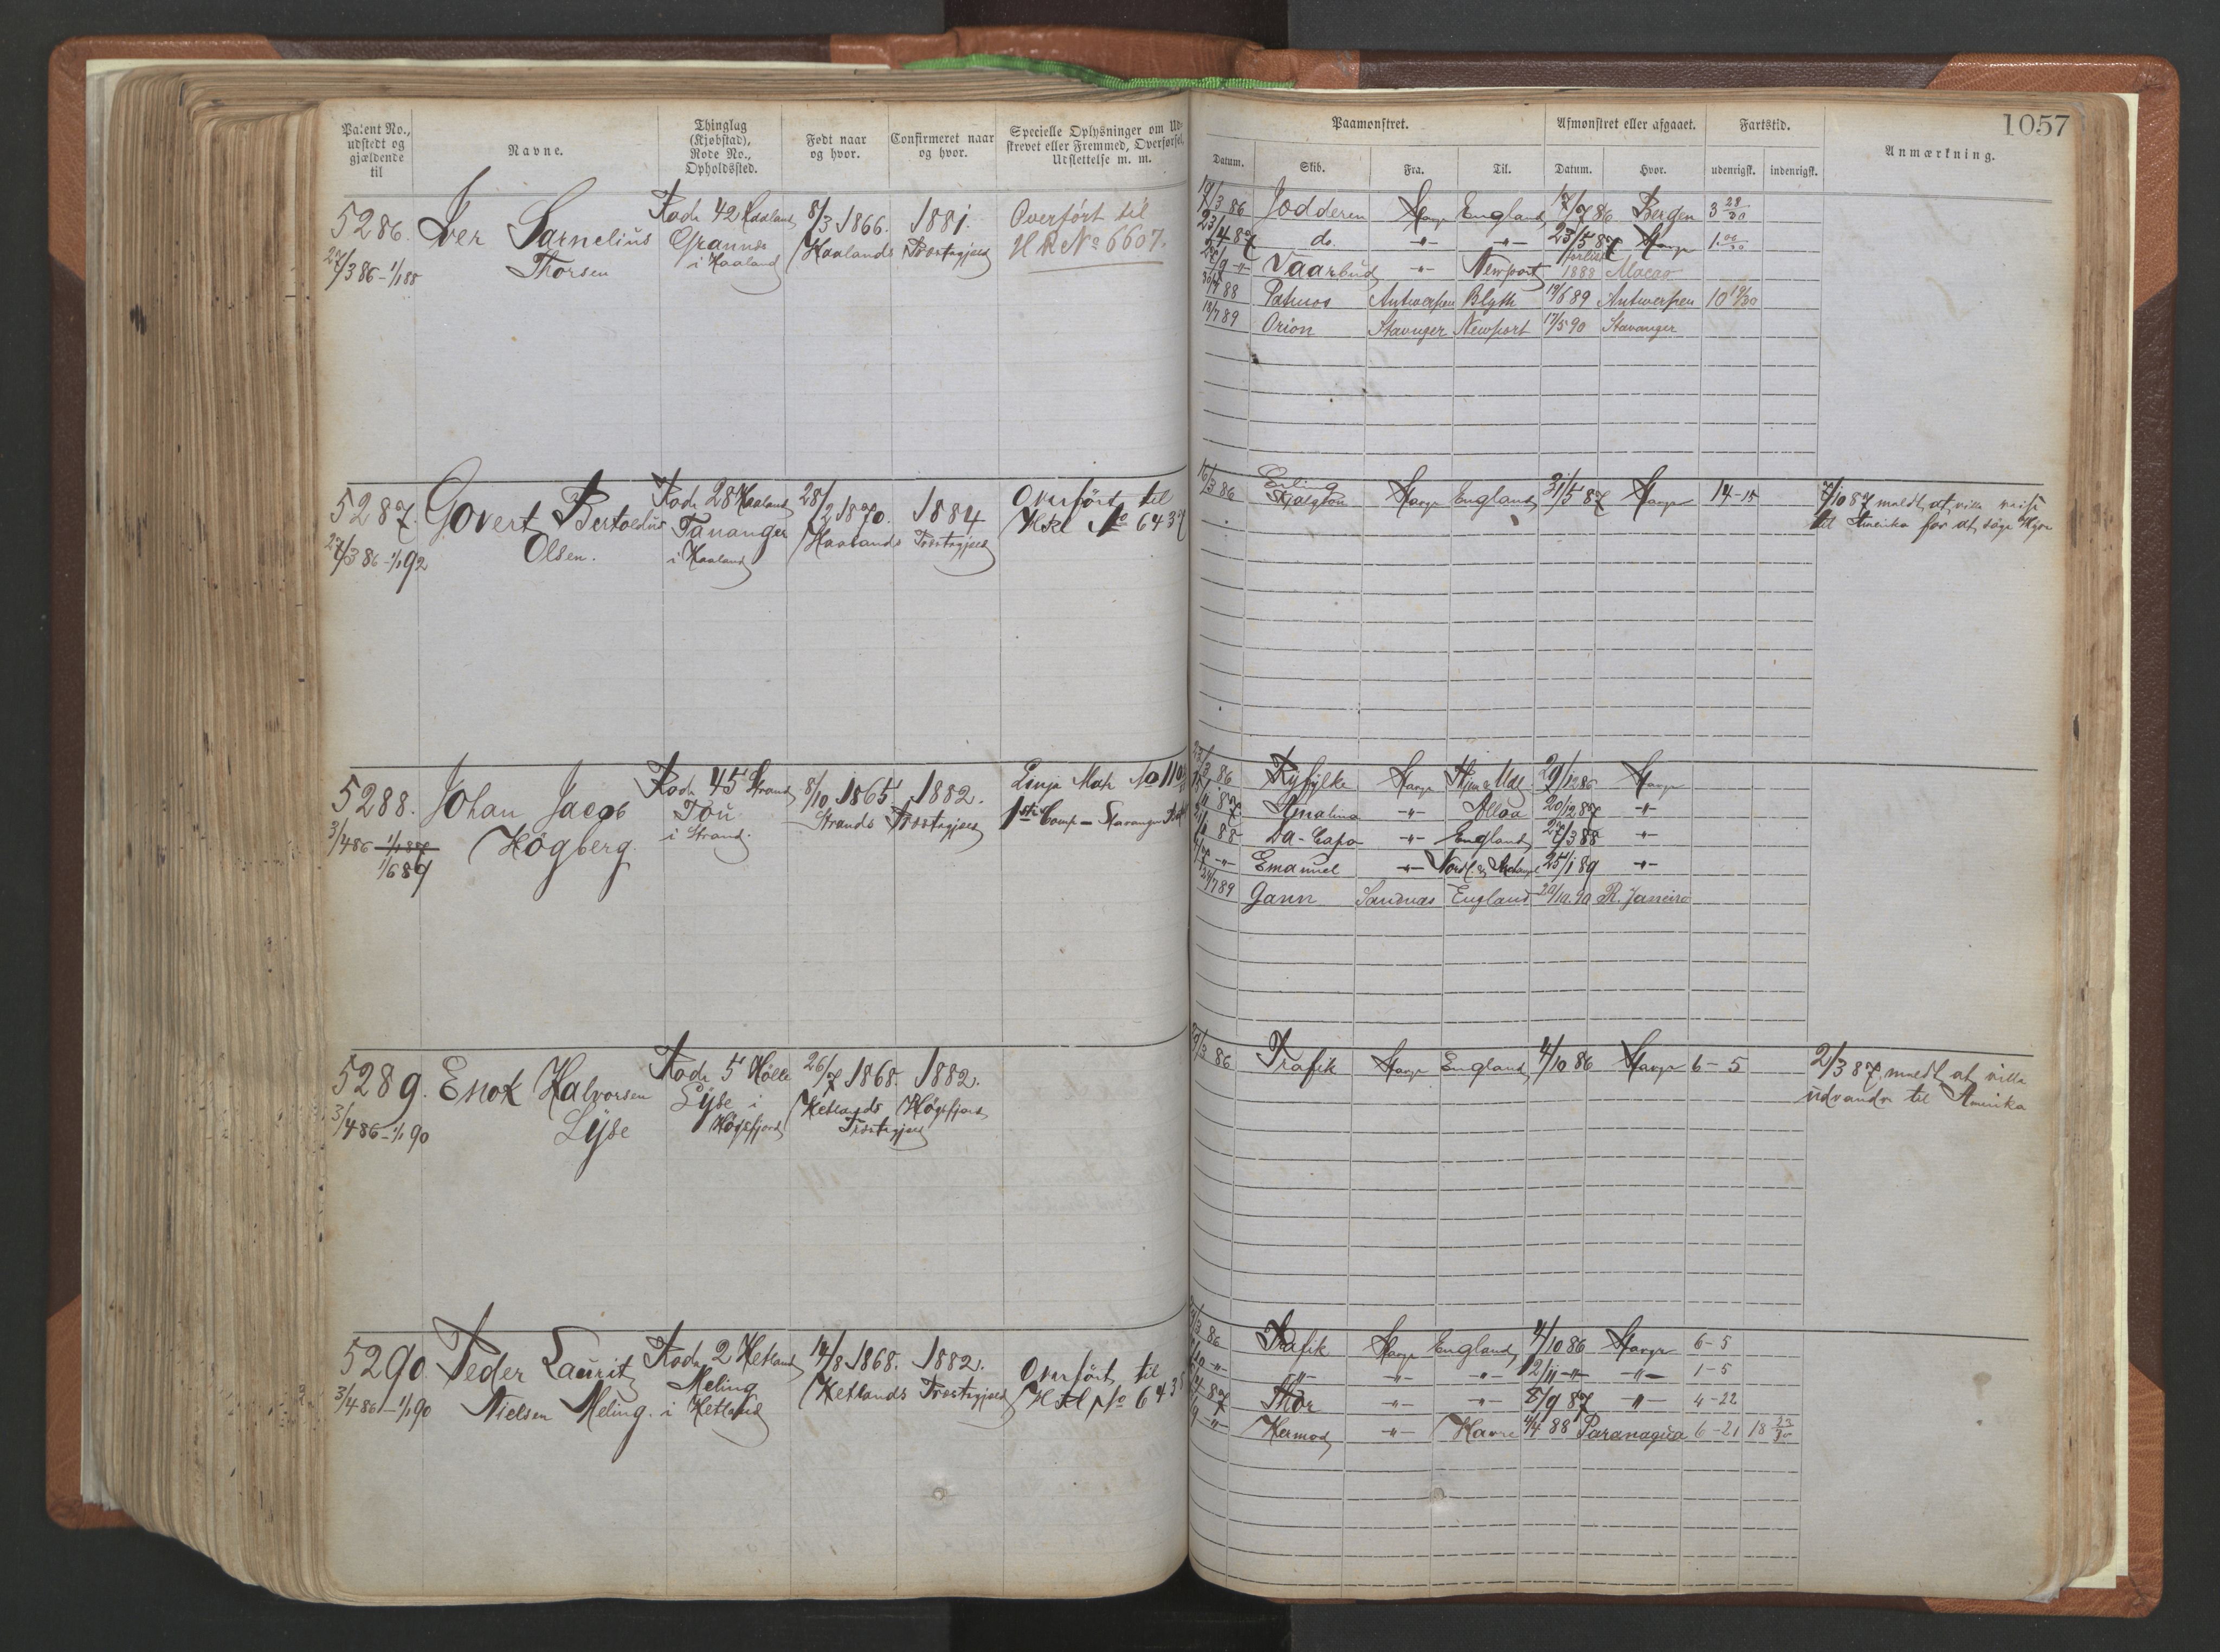 1057
Patent No., udstedt og gjældende til
Navne.
Thinglag (Kjøbstad), Rode No., Opholdssted.
Født naar og hvor.
Confirmeret naar og hvor.
Specielle Oplysninger om Udskrevet eller Fremmed, Overførsel, Udslettelse m. m.
Paamønstret.
Afmønstret eller afgaaet.
Fartstid.
Anmærkning.
Datum. Skib. Fra. Til. Datum. Hvor. udenrigsk. indenrigsk.
5286. Iver Sarnelius Rode 42 Haaland 8/3 1866. 1881. Overført til
Thorsen Grannes Haalands Præstegjeld HR No 6607.
27/3 86 - 1/1 88 i Haaland
19/3 86 Jædderen Stavgr England 17/7 86 Bergen 3 28/30
23/4 87 do. -"- -"- 23/5 87 Stavgr 1 00/30
-"- Vaarbud -"- Newport forlist 1888 Macao
88 Patmos Antwerpen Blyth 19/6 89 Antwerpen 10 19/30
18/7 89 Orion Stavnger Newport 17/5 90 Stavanger
5287. Govert Bertoldus Rode 28 Haaland 28/2 1870. 1884 Overført til
Olsen. Tananger Haalands Præstegjeld HRl No 6437
27/3 86 - 1/1 92 i Haaland
16/3 86 Erling Skjalgson Stavgr England 31/5 87 Stavgr 14-15
7/10 87 meldt at ville reise
til Amerika for at søge Hyre
5288. Johan Jacob Rode 45 Strand 8/10 1865 1882. Linje Matr No 110
Høgberg Tou Strands Præstegjeld 1ste Comp - Stavanger
3/4 86 1/1 87 i Strand.
1/6 89
86 Ryfylke Stavgr 29/12 86 Stavgr
87 Amalina -"- Alloa 20/12 87 -"-
88 Da-Capo -"- England 27/3 88 -"-
-"- Emanuel -"- 25/1 89 -"-
24/7 89 Gann Sandnæs England 20/10 90 R. Janeiro
5289. Enok Halvorsen Rode 5 Hølle 26/7 1868. 1882.
Lyse Lyse i Hetlands Høgsfjord
3/4 86 - 1/1 90 Høgsfjord Præstegjeld
86 Trafik Stavgr England 4/10 86 Stavgr 6-5
2/3 87. meldt at ville
udvandre til Amerika
5290. Peder Lauritz Rode 2 Hetland 14/8 1868. 1882. Overført til
Nielsen Meling. Meling Hetlands Præstegjeld HRl No 643
3/4 86 - 1/1 90 i Hetland
86 Trafik Stavgr England 4/10 86 Stavgr 6-5
-"- -"- -"- -"- 12/11 -"- -"- 1-5
87 Thor -"- -"- 8/9 87 -"- 4-22
-"- Hermod -"- Havre 4/4 88 Paranagua 6-21 18 23/30